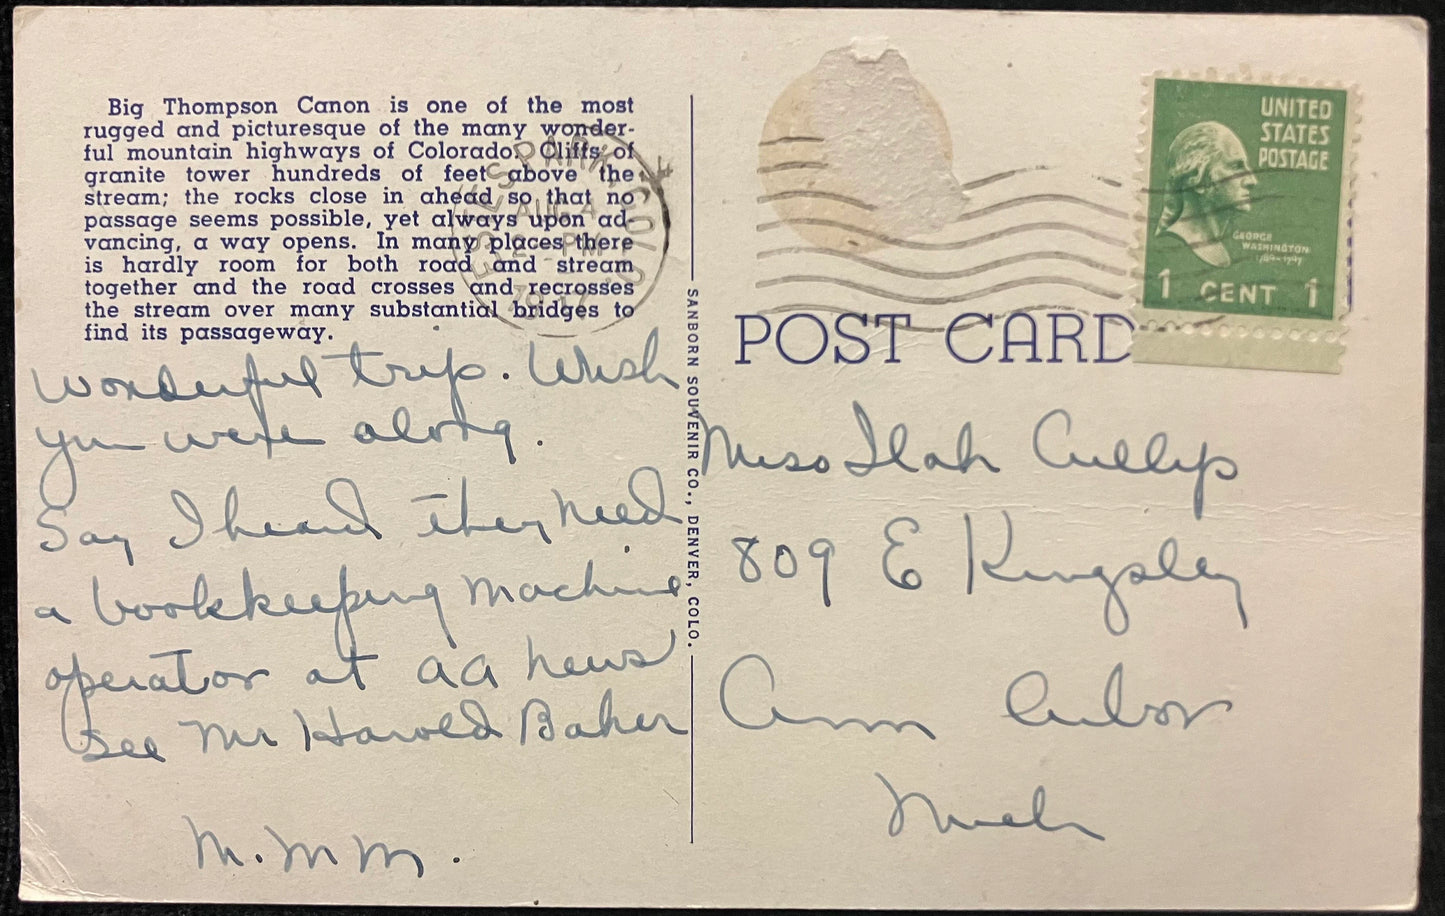 Big Thompson Canon is one of the most
rugged and picturesque of the many wonder-
ful mountain highways of Colorado. Cliffs of
granite tower hundreds of feet above the
stream; the rocks close in ahead so that no
passage seems possible, yet always upon ad-
vancing, a way opens. In many places there
is hardly room for both road and stream
together and the road crosses and recrosses
the stream over many substantial bridges to
find its passageway.
wonderful trip. Wish
you were along.
Say I heard they need
a bookkeeping machine
operator at aa news
see Mr Harold Baker
M. M M.
SANBORN SOUVENIR CO., DENVER, COLO.
ESTES PARK, COLO.
AUG 4
PM
UNITED
STATES
POSTAGE
GEORGE
WASHINGTON
1789-1797
1 CENT 1
POST CARD
Miss Ilah Cullip
809 E Kingsley
Ann Arbor
Mich